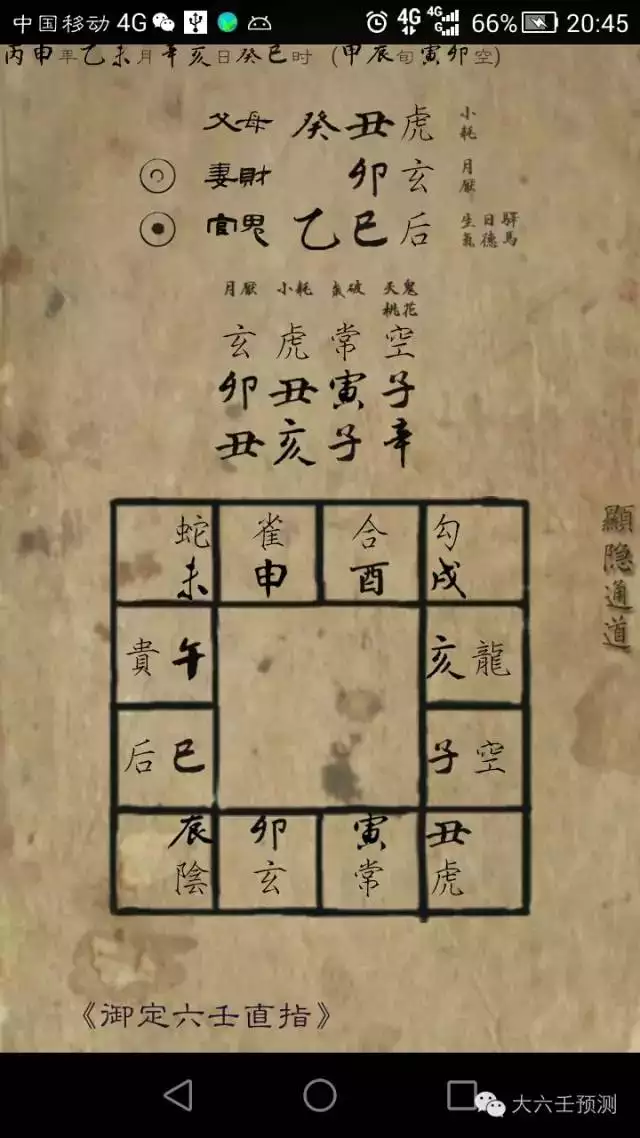 中国移动 4G 4G 4G G 66% 20:45
丙申年乙未月辛亥日癸巳时 (甲辰旬寅卯空)
父母 癸丑虎 小耗
妻財 卯玄 月厭
官鬼 乙巳后 生氣 日德 驛馬
月厭 小耗 氣破 天鬼 桃花
玄虎常空
卯丑寅子
丑亥子辛
蛇 雀 合 勾
未 申 酉 戌
貴午 亥龍
后巳 子空
辰 卯 寅 丑
陰 玄 常 虎
顯隐通道
《御定六壬直指》
大六壬预测